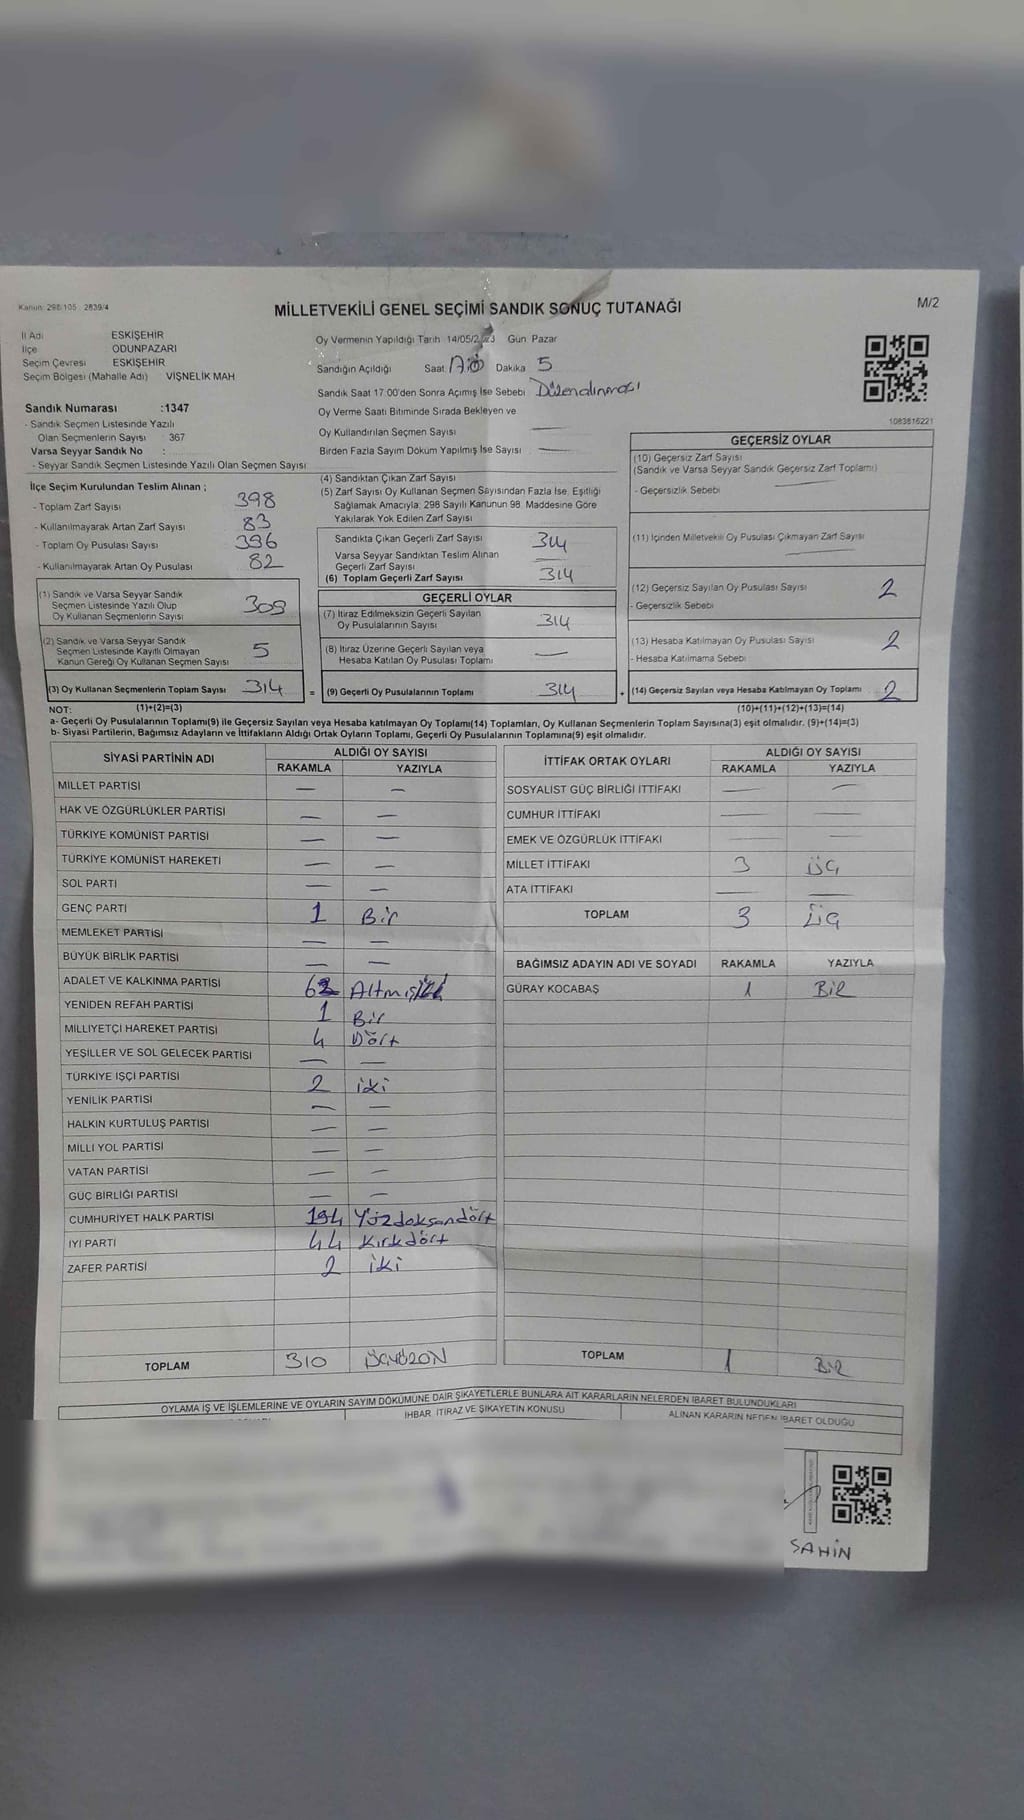 Kanun: 298/105 2839/4
MİLLETVEKİLİ GENEL SEÇİMİ SANDIK SONUÇ TUTANAĞI
M/2
İl Adı ESKİŞEHİR
İlçe ODUNPAZARI
Seçim Çevresi ESKİŞEHİR
Seçim Bölgesi (Mahalle Adı) VİŞNELİK MAH
Sandık Numarası :1347
- Sandık Seçmen Listesinde Yazılı
Olan Seçmenlerin Sayısı 367
Varsa Seyyar Sandık No :
- Seyyar Sandık Seçmen Listesinde Yazılı Olan Seçmen Sayısı
Oy Vermenin Yapıldığı Tarih 14/05/2 Gün Pazar
Sandığın Açıldığı Saat Dakika 5
Sandık Saat 17:00'den Sonra Açımış İse Sebebi
Oy Verme Saati Bitiminde Sırada Bekleyen ve
Oy Kullandırılan Seçmen Sayısı —
Birden Fazla Sayım Döküm Yapılmış İse Sayısı —
1083816221
İlçe Seçim Kurulundan Teslim Alınan ;
- Toplam Zarf Sayısı 398
- Kullanılmayarak Artan Zarf Sayısı 83
- Toplam Oy Pusulası Sayısı 396
- Kullanılmayarak Artan Oy Pusulası 82
(1) Sandık ve Varsa Seyyar Sandık
Seçmen Listesinde Yazılı Olup
Oy Kullanan Seçmenlerin Sayısı 309
(2) Sandık ve Varsa Seyyar Sandık
Seçmen Listesinde Kayıtlı Olmayan
Kanun Gereği Oy Kullanan Seçmen Sayısı 5
(3) Oy Kullanan Seçmenlerin Toplam Sayısı 314
(4) Sandıktan Çıkan Zarf Sayısı
(5) Zarf Sayısı Oy Kullanan Seçmen Sayısından Fazla İse, Eşitliği
Sağlamak Amacıyla: 298 Sayılı Kanunun 98. Maddesine Göre
Yakılarak Yok Edilen Zarf Sayısı
Sandıkta Çıkan Geçerli Zarf Sayısı 314
Varsa Seyyar Sandıktan Teslim Alınan
Geçerli Zarf Sayısı —
(6) Toplam Geçerli Zarf Sayısı 314
GEÇERLİ OYLAR
(7) İtiraz Edilmeksizin Geçerli Sayılan
Oy Pusulalarının Sayısı 314
(8) İtiraz Üzerine Geçerli Sayılan veya
Hesaba Katılan Oy Pusulası Toplamı —
= (9) Geçerli Oy Pusulalarının Toplamı 314
GEÇERSİZ OYLAR
(10) Geçersiz Zarf Sayısı
(Sandık ve Varsa Seyyar Sandık Geçersiz Zarf Toplamı)
- Geçersizlik Sebebi —
(11) İçinden Milletvekili Oy Pusulası Çıkmayan Zarf Sayısı —
(12) Geçersiz Sayılan Oy Pusulası Sayısı 2
- Geçersizlik Sebebi
(13) Hesaba Katılmayan Oy Pusulası Sayısı 2
- Hesaba Katılmama Sebebi
+ (14) Geçersiz Sayılan veya Hesaba Katılmayan Oy Toplamı 2
NOT: (1)+(2)=(3) (10)+(11)+(12)+(13)=(14)
a- Geçerli Oy Pusulalarının Toplamı(9) ile Geçersiz Sayılan veya Hesaba katılmayan Oy Toplamı(14) Toplamları, Oy Kullanan Seçmenlerin Toplam Sayısına(3) eşit olmalıdır. (9)+(14)=(3)
b- Siyasi Partilerin, Bağımsız Adayların ve İttifakların Aldığı Ortak Oyların Toplamı, Geçerli Oy Pusulalarının Toplamına(9) eşit olmalıdır.
SİYASİ PARTİNİN ADI ALDIĞI OY SAYISI
RAKAMLA YAZIYLA
MİLLET PARTİSİ — —
HAK VE ÖZGÜRLÜKLER PARTİSİ — —
TÜRKİYE KOMÜNİST PARTİSİ — —
TÜRKİYE KOMÜNİST HAREKETİ — —
SOL PARTİ — —
GENÇ PARTİ 1 Bir
MEMLEKET PARTİSİ — —
BÜYÜK BİRLİK PARTİSİ — —
ADALET VE KALKINMA PARTİSİ
YENİDEN REFAH PARTİSİ 1 Bir
MİLLİYETÇİ HAREKET PARTİSİ 4 Dört
YEŞİLLER VE SOL GELECEK PARTİSİ — —
TÜRKİYE İŞÇİ PARTİSİ 2 iki
YENİLİK PARTİSİ — —
HALKIN KURTULUŞ PARTİSİ — —
MİLLİ YOL PARTİSİ — —
VATAN PARTİSİ — —
GÜÇ BİRLİĞİ PARTİSİ — —
CUMHURİYET HALK PARTİSİ 194 Yüzdoksandört
İYİ PARTİ 44 Kırkdört
ZAFER PARTİSİ 2 iki
TOPLAM 310 ÜÇYÜZON
İTTİFAK ORTAK OYLARI ALDIĞI OY SAYISI
RAKAMLA YAZIYLA
SOSYALİST GÜÇ BİRLİĞİ İTTİFAKI — —
CUMHUR İTTİFAKI — —
EMEK VE ÖZGÜRLÜK İTTİFAKI — —
MİLLET İTTİFAKI 3 ÜÇ
ATA İTTİFAKI — —
TOPLAM 3 ÜÇ
BAĞIMSIZ ADAYIN ADI VE SOYADI RAKAMLA YAZIYLA
GÜRAY KOCABAŞ 1 BİR
TOPLAM 1 BİR
OYLAMA İŞ VE İŞLEMLERİNE VE OYLARIN SAYIM DÖKÜMÜNE DAİR ŞİKAYETLERLE BUNLARA AİT KARARLARIN NELERDEN İBARET BULUNDUKLARI
İHBAR İTİRAZ VE ŞİKAYETİN KONUSU
ALINAN KARARIN NEDEN İBARET OLDUĞU
ŞAHİN